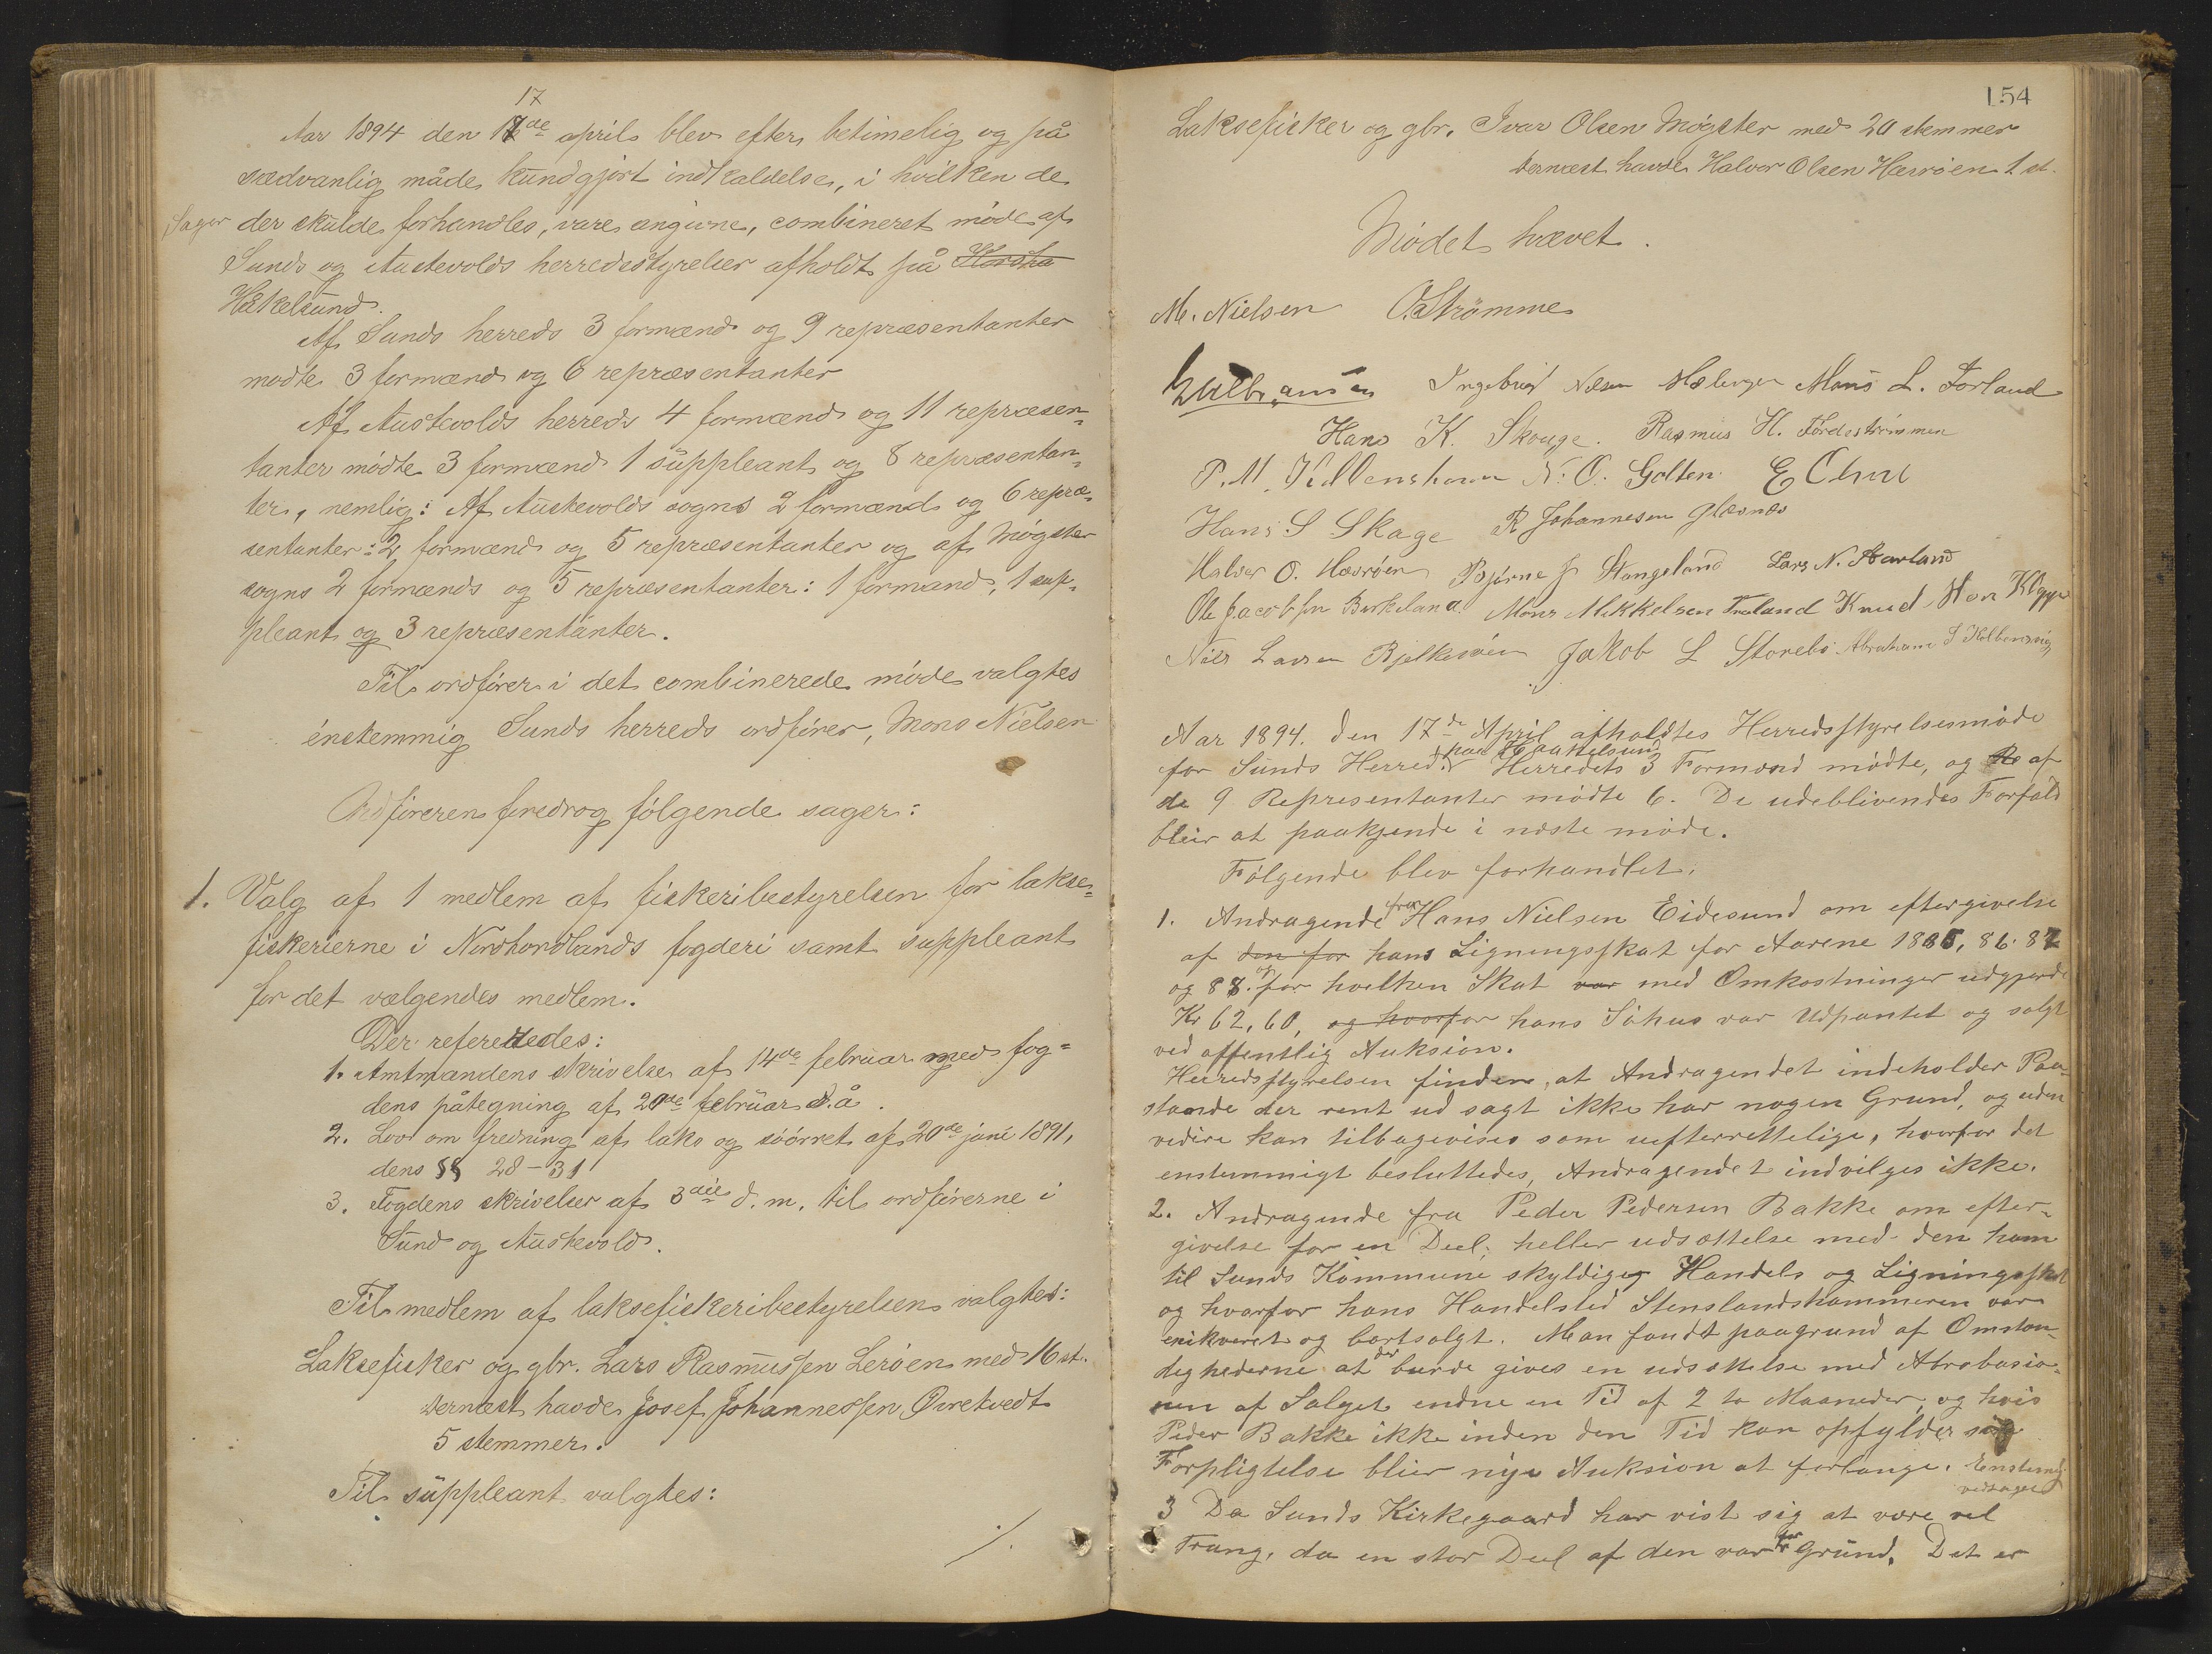 Aar 1894 den 17de april blev efter betimelig og på
sædvanlig måde kundgjort indkaldelse, i hvilken de
Sager der skulde forhandles, vare angivne, combineret møde af
Sunds og Austevolds herredsstyrelser afholdt på
Hækelsund.
Af Sunds herreds 3 formænd og 9 repræsentanter
mødte 3 formænd og 6 repræsentanter
Af Austevolds herreds 4 formænd og 11 repræsen-
tanter mødte 3 formænd 1 suppleant og 8 repræsentan-
ter, nemlig: Af Austevolds sogns 2 formænd og 6 repræ-
sentanter: 2 formænd og 5 repræsentanter og af Møgster
sogns 2 formænds og 5 repræsentanter: 1 formand, 1 sup-
pleant og 3 repræsentanter.
Til ordfører i det combinerede møde valgtes
énstemmig Sunds herreds ordfører, Mons Nielsen
Ordføreren foredrog følgende sager:
1. Valg af 1 medlem af fiskeribestyrelsen for lakse-
fiskerierne i Nordhordlands fogderi samt suppleant
for det vælgendes medlem.
Der refereredes:
1. Amtmandens skrivelse af 14de februar med fog-
dens påtegning af 20de februar d.å.
2. Lov om fredning af laks og søørret af 20de juni 1891,
dens §§ 28-31
3. Fogdens skrivelser af 3die d. m. til ordførerne i
Sund og Austevold.
Til medlem af laksefiskeribestyrelsen valgtes:
Laksefisker og gbr. Lars Rasmussen Lerøen med 16 st.
Dernæst havde Josef Johannessen Qvretvedt
5 stemmer.
Til suppleant valgtes:
./.
154
Laksefisker og gbr. Ivar Olsen Møgster med 20 stemmer
Dernæst havde Halvor Olsen Hevrøen 1 st.
Mødet hævet.
M. Nielsen O. Strømme
Ingebrigt Nilsen Mons L. Forland
Hans K. Skouge. Rasmus H. Førdestrømmen
P. M. N. O. Golten
Hans S Skage R Johannesen Glesnæs
Halvor O. Hævrøen Bjørne J Stangeland Lars N.
Ole Jacobsen Birkeland Mons Mikkelsen Træland Knud
Nils Larsen Bjelkerøen Jakob L Storebø Abraham I Kolbensvig
Aar 1894. den 17de April afholdtes Herredsstyrelsesmøde
for Sunds Herred paa Haakelsund Herredets 3 Formænd mødte, og af
de 9 Representanter mødte 6. De udeblivendes Forfald
bleiv at paakjende i næste møde.
Følgende blev forhandlet:
1. Andragende fra Hans Nielsen Eidesund om eftergivelse
af den for hans Ligningsskat for Aarene 1885, 86. 87
og 88. og for hvelken Skat var med Omkostninger udgjorde
Kr 62,60, og hvorfor hans Søhus var Udpantet og solgt
ved offentlig Auksion.
Herredsstyrelsen finder, at Andragendet indeholder Paa-
stande der rent ud sagt ikke har nogen Grund, og uden
vedire kan tilbagevises som uefterrettelige, hvorfor det
enstemmigt besluttedes, Andragendet indvilges ikke.
2. Andragende fra Peder Pedersen Bakke om efter-
givelse for en Deel, heller udsættelse med den ham
til Sunds Kommune skyldiges Handels og Ligningsskat
og hvorfor hans Handelsted Stenslandshammeren var
enikveret og bortsolgt. Man fandt paagrund af Omstæn-
dighederne at der burde gives en udsættelse med Abrobasio-
nen af Salget endne en Tid af 2 to Maaneder, og hvis
Peder Bakke ikke inden den Tid kan opfylder sin
Forpligtelse blier nye Auksion at forlange. Enstemig
vedtaget
3 Da Sunds Kirkegaard har vist sig at være vel
Trang, da en stor Deel af den var for Grund, Det er